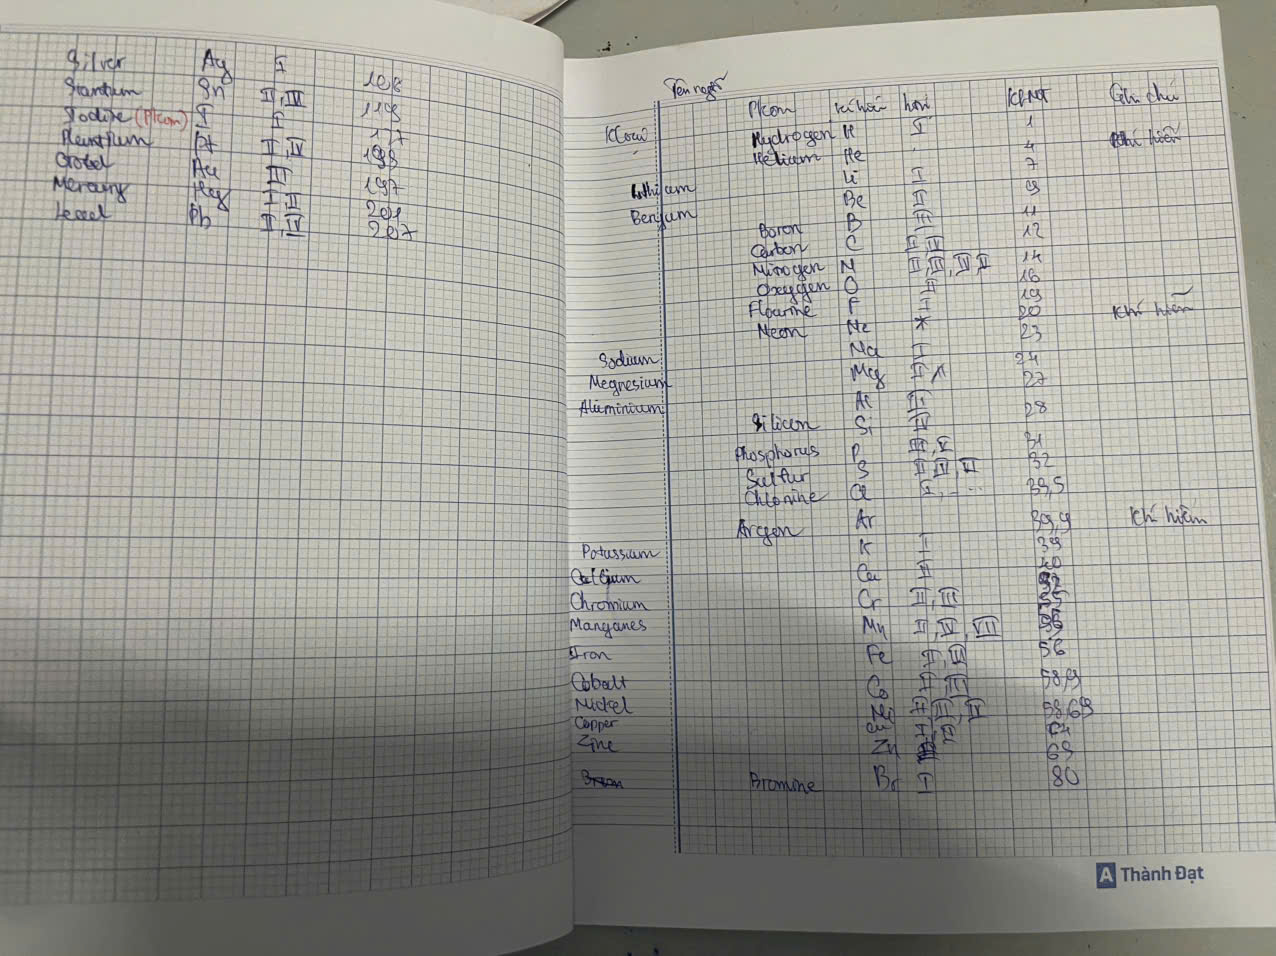 Silver Ag I 108
Stantum Sn II, III 119
Iodine (Pkom) I I 127
Plantium Pt II, IV 195
Gold Au III 197
Mercury Hg I II 201
Lead Pb II, IV 207
Tên ngtố
Kloại Pkom kí hiệu hoá KLNT Ghi chú
Hydrogen H I 1
Helium He 4 Khí hiếm
Lithium Li I 7
Berryum Be II 9
Boron B III 11
Carbon C II, IV 12
Nitrogen N 14
Oxygen O II 16
Flourine F I 19
Neon Ne * 20 Khí hiếm
Sodium Na I 23
Megnesium Mg II * 24
Aluminium Al III 27
Silicon Si IV 28
Phosphorus P III, V 31
Sulfur S II, IV, VI 32
Chlonine Cl I, ... 35,5
Argen Ar 39,9 Khí hiếm
Potassium K I 39
Calcium Ca II 40
Chromium Cr II, III 52
Manganes Mn II, IV, VII 55
Iron Fe II, III 56
Cobalt Co 58,9
Nickel 58,69
Copper 64
Zinc 65
Bromine Br I 80
A Thành Đạt